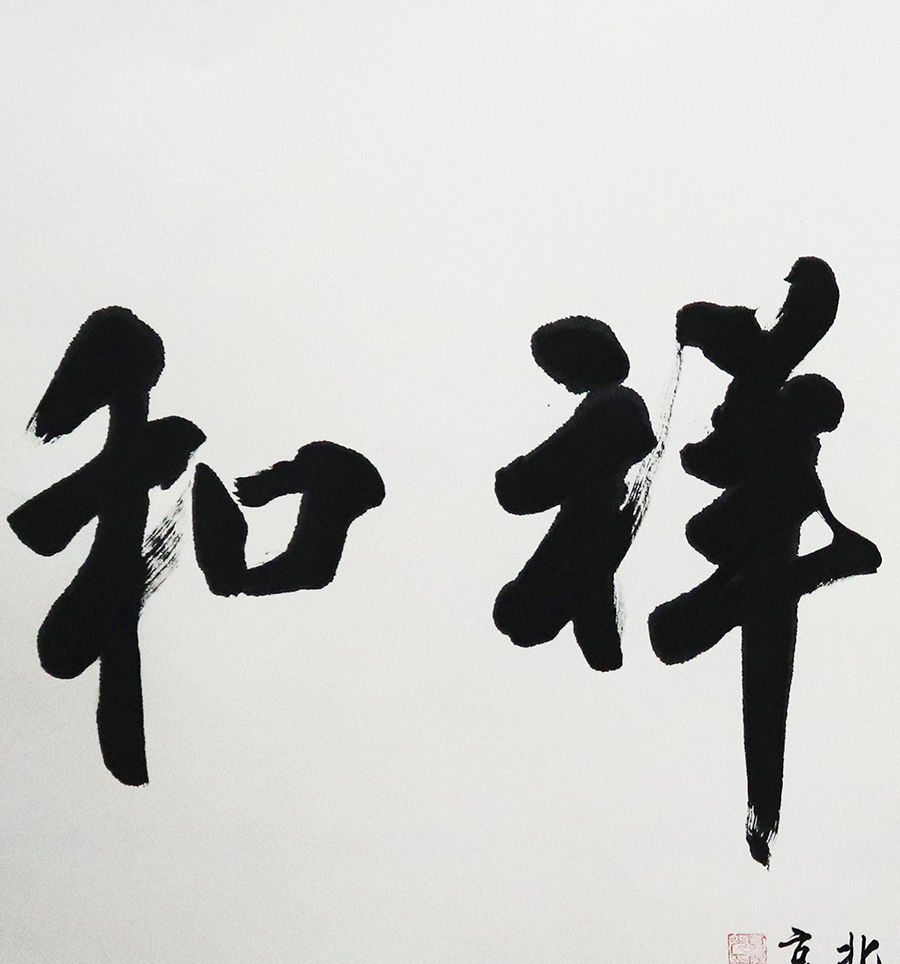 祥和
北京